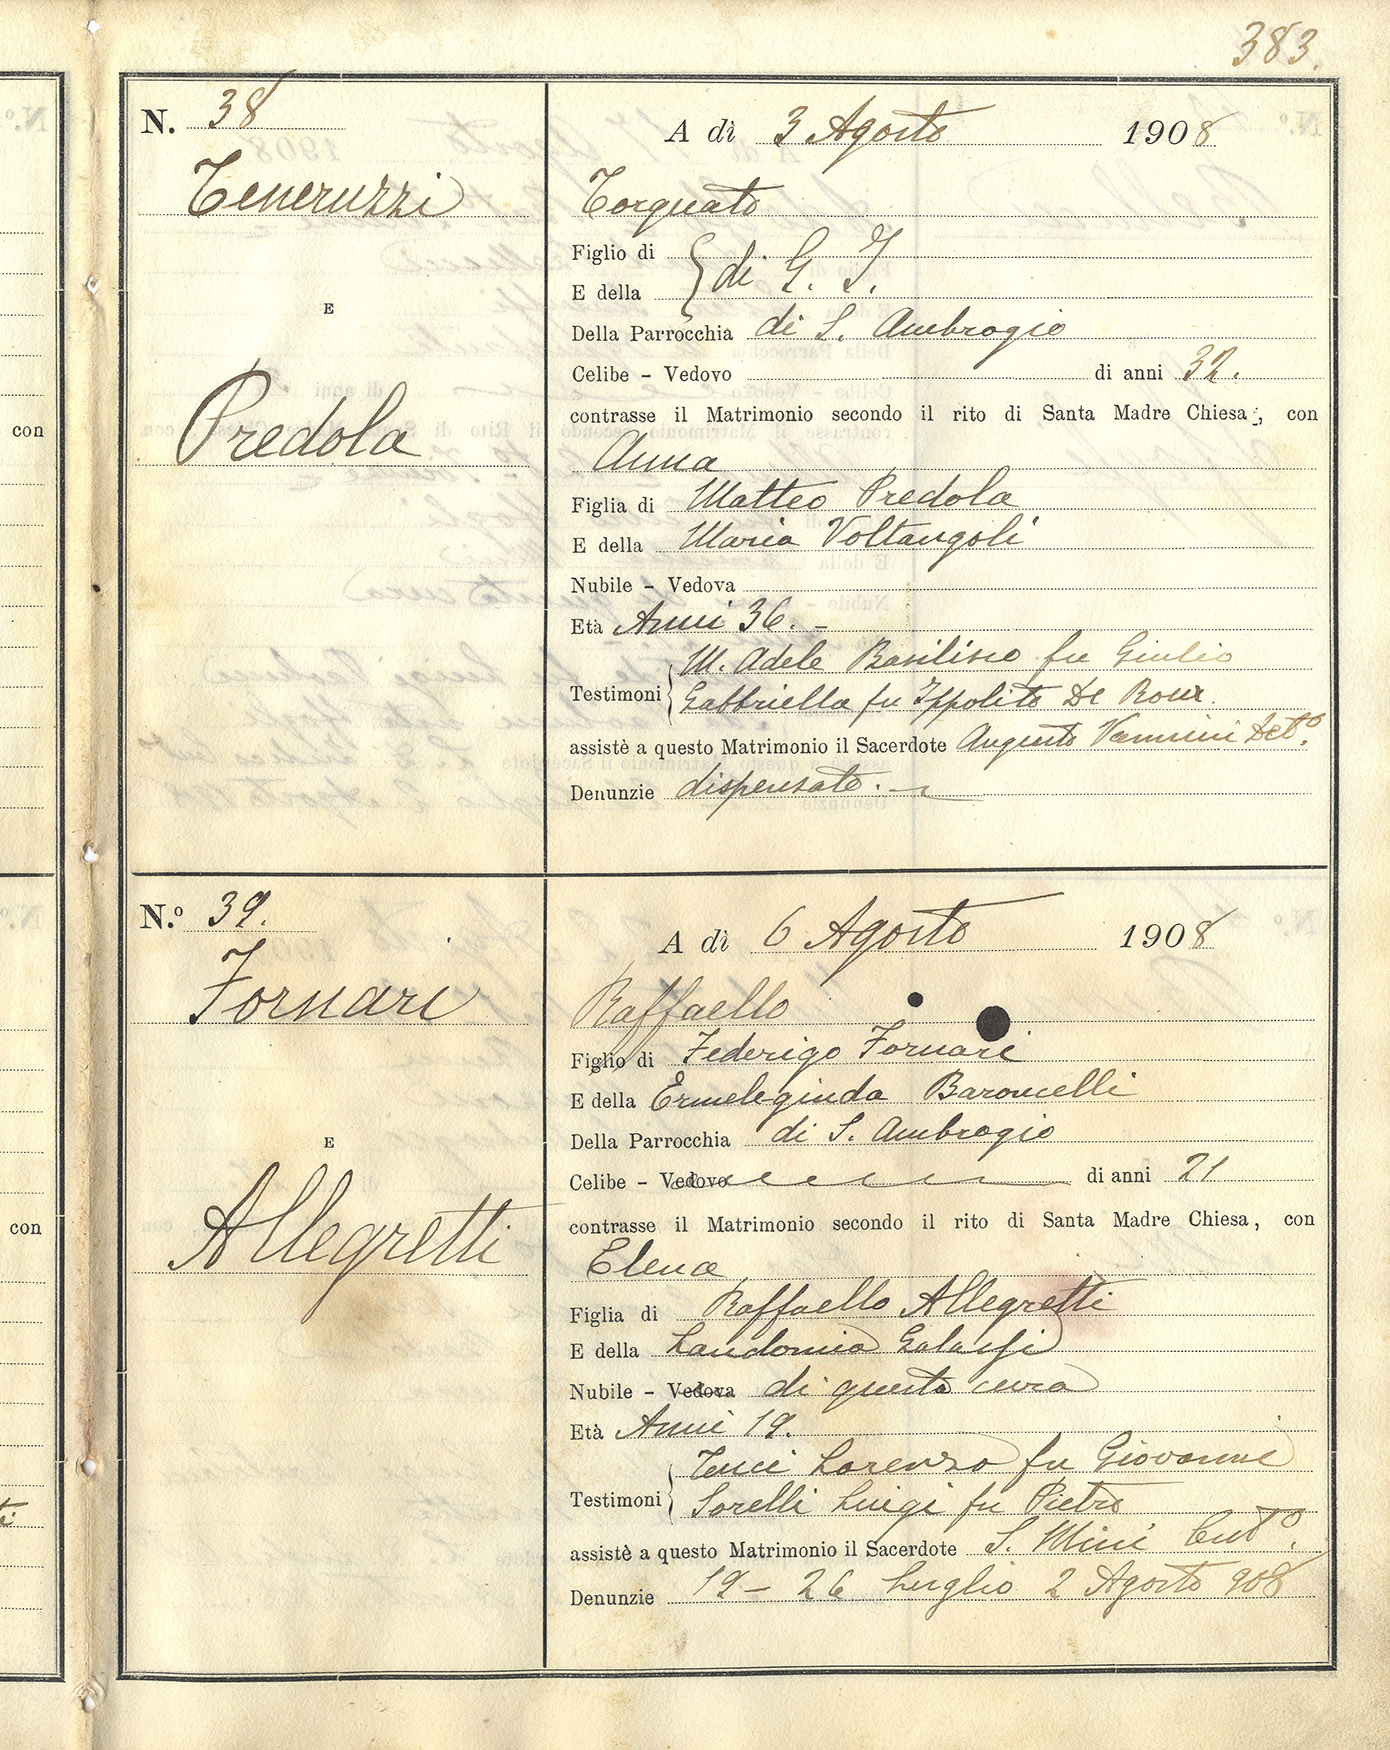 383.
N. 38
A dì 3 Agosto 1908
Teneruzzi
Torquato
Figlio di
di G. I.
E della
E
Della Parrocchia di S. Ambrogio
Celibe – Vedovo di anni 32.
contrasse il Matrimonio secondo il rito di Santa Madre Chiesa, con
Predola
Anna
Figlia di Matteo Predola
E della Maria Voltangoli
Nubile – Vedova
Età Anni 36. –
M. Adele Basilisco fu Giulio
Testimoni Gabbriella fu Ippolito De Roux
assistè a questo Matrimonio il Sacerdote Augusto Vannini
Denunzie dispensate.
con
N.º 39.
A dì 6 Agosto 1908
Fornari
Raffaello
Figlio di Federigo Fornari
E della Ermeleginda Baroncelli
E
Della Parrocchia di S. Ambrogio
Celibe – Vedovo di anni 21
contrasse il Matrimonio secondo il rito di Santa Madre Chiesa, con
Allegretti
Elena
Figlia di Raffaello Allegretti
E della Laudomia Galassi
Nubile – Vedova di questa cura
Età Anni 19.
Tucci Lorenzo fu Giovanni
Testimoni Sorelli Luigi fu Pietro
assistè a questo Matrimonio il Sacerdote S. Mini Curº.
Denunzie 19 – 26 Luglio 2 Agosto 908
con